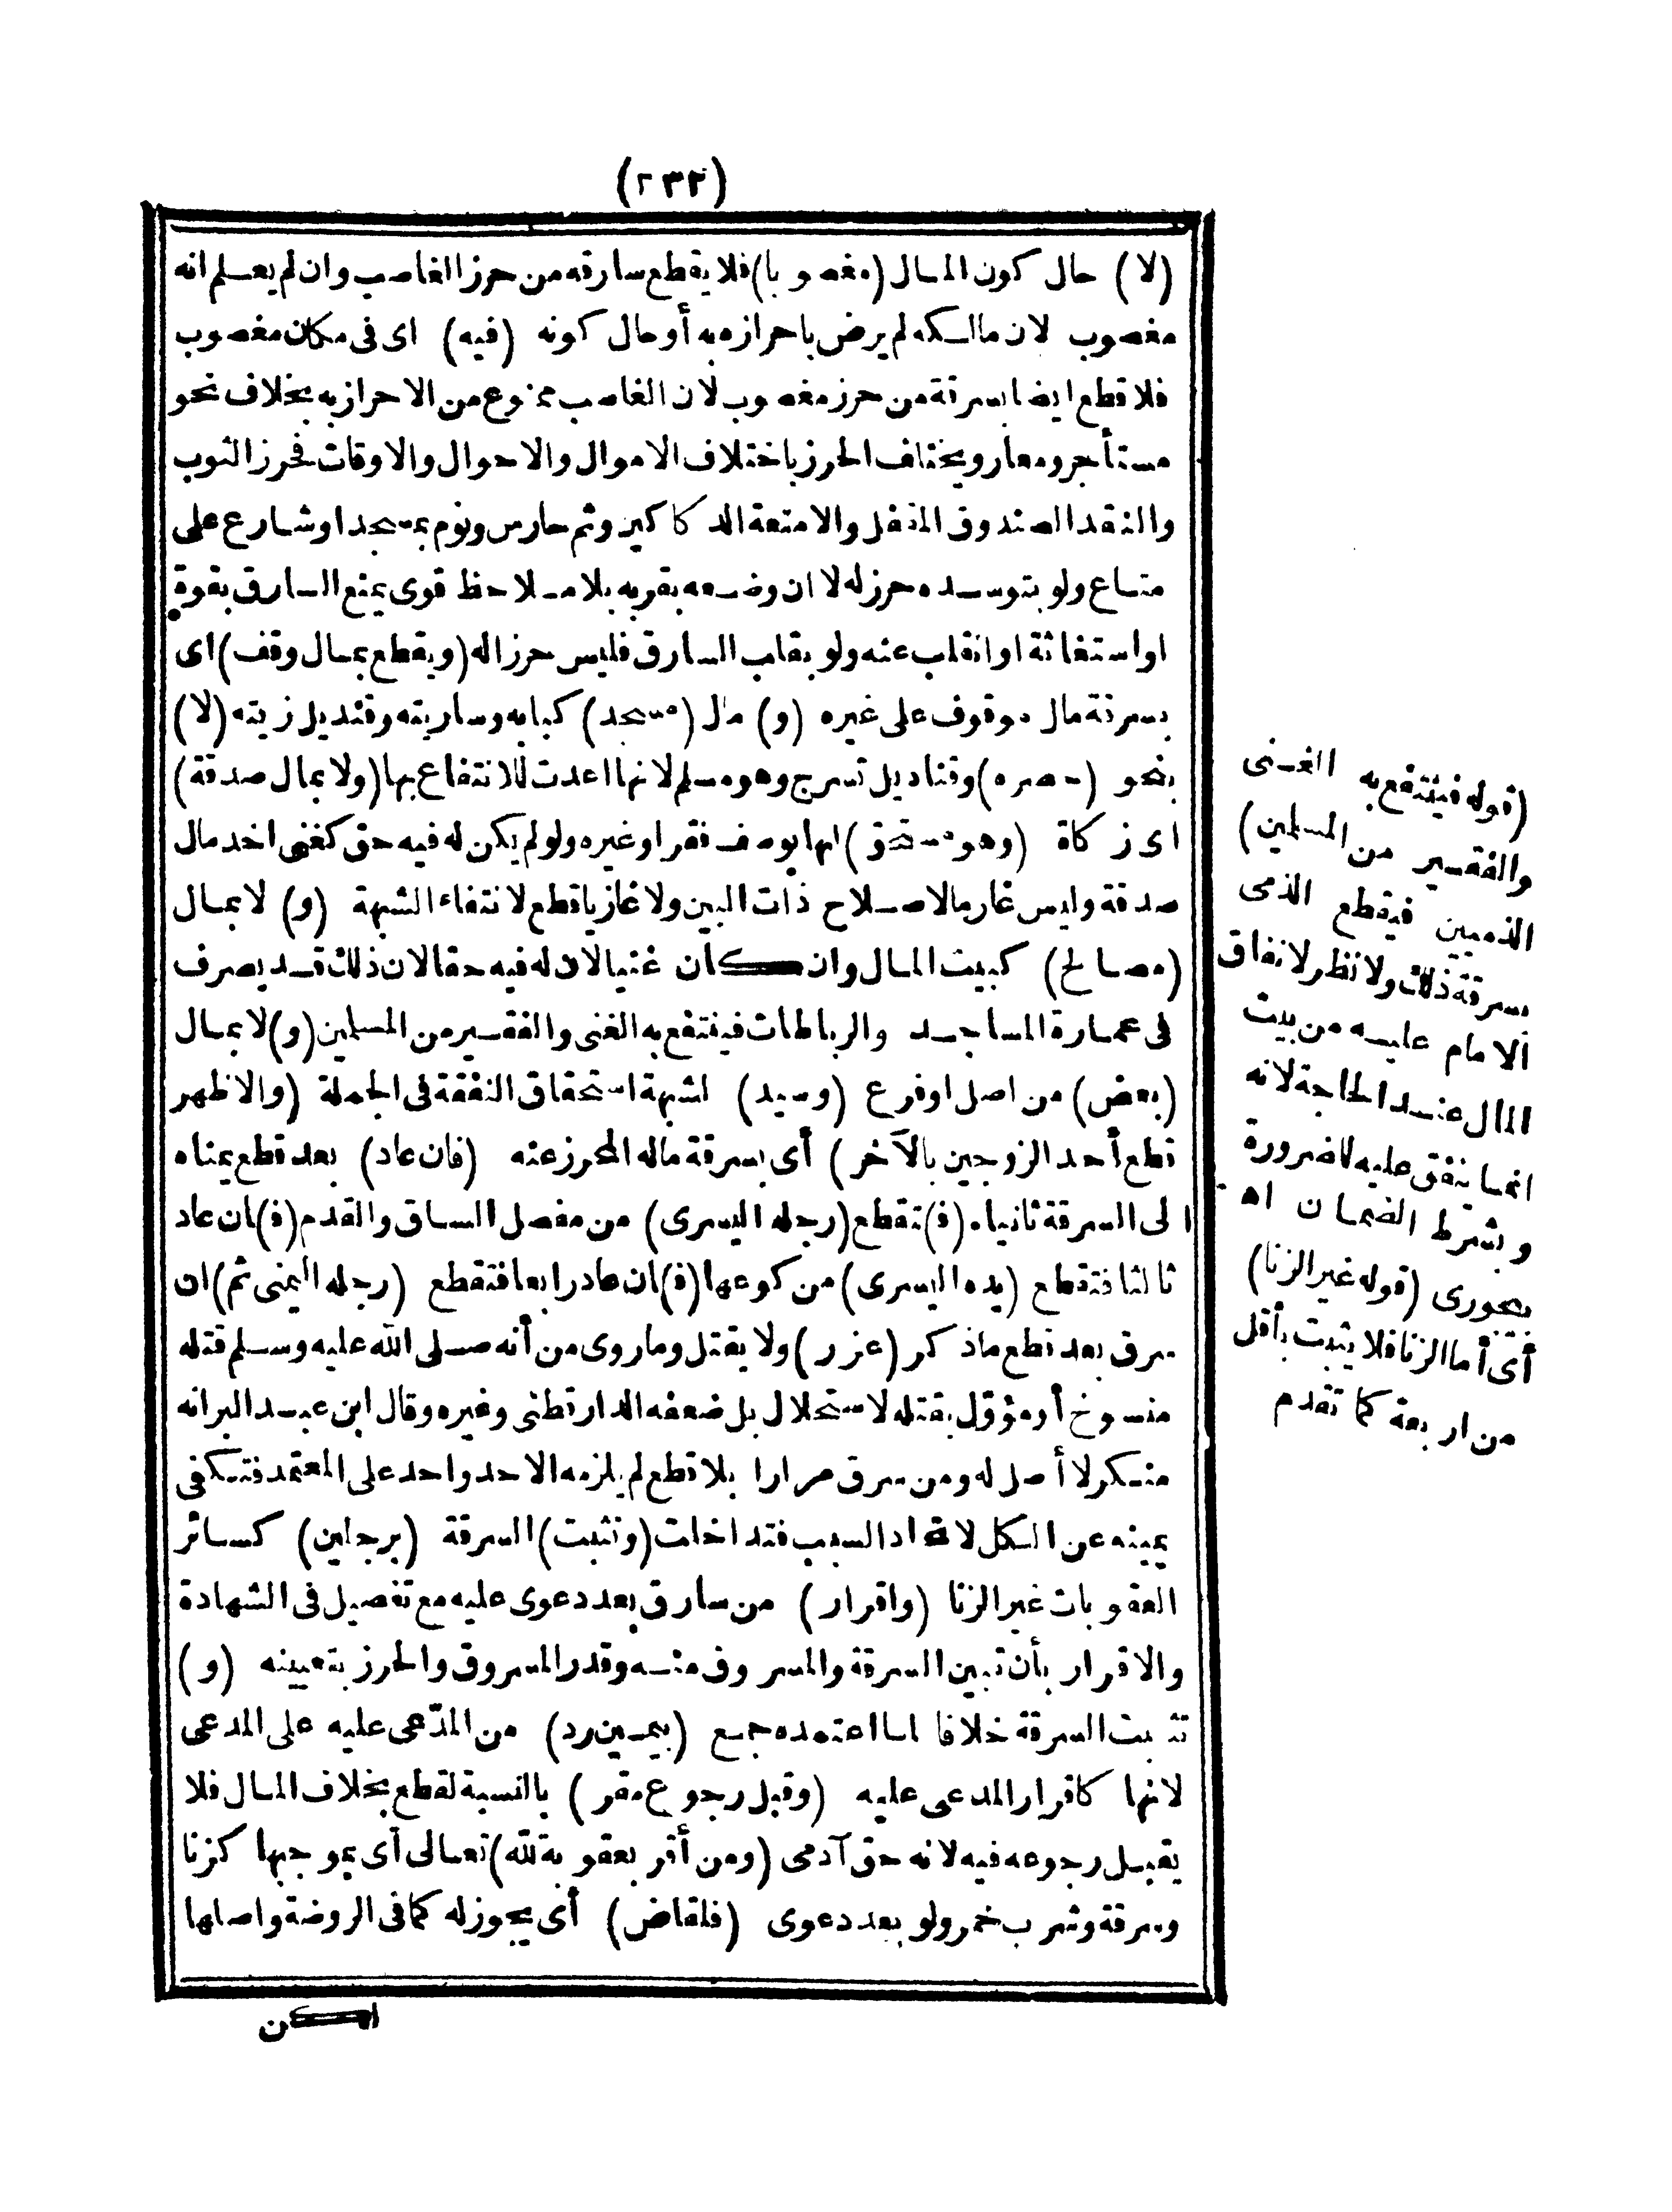 (٢٣٢)
(لا) حال كون المال (مغصوبا) فلا يقطع سارقه من حرز الغاصب وان لم يعلم انه
مغصوب لان مالكه لم يرض باحرازه به أو حال كونه (فيه) اى فى مكان مغصوب
فلا قطع ايضا بسرقة من حرز مغصوب لان الغاصب ممنوع من الاحراز به بخلاف نحو
مستأجر ومعار ويختلف الحرز باختلاف الاموال والاحوال والاوقات فحرز الثوب
والنقد الصندوق المقفل والامتعة الدكاكين وثم حارس ونوم بمسجد او شارع على
متاع ولو بتوسده حرز له لا ان وضعه بقربه بلا ملاحظ قوى يمنع السارق بقوة
او استغاثة او انقلب عنه ولو بقلب السارق فليس حرزا له (ويقطع بمال وقف) اى
بسرقة مال موقوف على غيره (و) مال (مسجد) كبابه وساريته وقنديل زينته (لا)
بنحو (حصره) وقناديل تسرج وهو مسلم لانها اعدت للانتفاع بها (ولا بمال صدقة)
اى زكاة (وهو مستحق) لها بوصف فقر او غيره ولو لم يكن له فيه حق كغنى اخذ مال
صدقة وليس غارما لاصلاح ذات البين ولا غازيا قطع لانتفاء الشبهة (و) لا بمال
(مصالح) كبيت المال وان كان غنيا لان له فيه حقا لان ذلك قد يصرف
فى عمارة المساجد والرباطات فينتفع به الغنى والفقير من المسلمين (و) لا بمال
(بعض) من اصل او فرع (وسيد) لشبهة استحقاق النفقة فى الجملة (والاظهر
قطع أحد الزوجين بالآخر) أى بسرقة ماله المحرز عنه (فان عاد) بعد قطع يمناه
الى السرقة ثانيا (ف) تقطع (رجله اليسرى) من مفصل الساق والقدم (ف) ان عاد
ثالثا فتقطع (يده اليسرى) من كوعها (ف) ان عاد رابعا فتقطع (رجله اليمنى ثم) ان
سرق بعد قطع ما ذكر (عزر) ولا يقتل وما روى من أنه صلى الله عليه وسلم قتله
منسوخ أو مؤوّل بقتله لاستحلال بل ضعفه الدارقطنى وغيره وقال ابن عبد البر انه
منكر لا أصل له ومن سرق مرارا بلا قطع لم يلزمه الا حد واحد على المعتمد فتكفى
يمينه عن الكل لاتحاد السبب فتداخلت (وتثبت) السرقة (برجلين) كسائر
العقوبات غير الزنا (واقرار) من سارق بعد دعوى عليه مع تفصيل فى الشهادة
والاقرار بأن تبين السرقة والمسروق منه وقدر المسروق والحرز بتعيينه (و)
تثبت السرقة خلافا لما اعتمده جمع (بيمين رد) من المدّعى عليه على المدعى
لانها كاقرار المدعى عليه (وقبل رجوع مقر) بالنسبة لقطع بخلاف المال فلا
يقبل رجوعه فيه لانه حق آدمى (ومن أقر بعقوبة لله) تعالى أى بموجبها كزنا
وسرقة وشرب خمر ولو بعد دعوى (فلقاض) أى يجوز له كما فى الروضة واصلها
لكن
(قوله فينتفع به الغنى
والفقير من المسلمين)
الذميين فيقطع الذمى
بسرقة ذلك ولا نظر لانفاق
الامام عليه من بيت
المال عند الحاجة لانه
انما ينفق عليه للضرورة
وبشرط الضمان اه
بجورى (قوله غير الزنا)
أى أما الزنا فلا يثبت بأقل
من اربعة كما تقدم